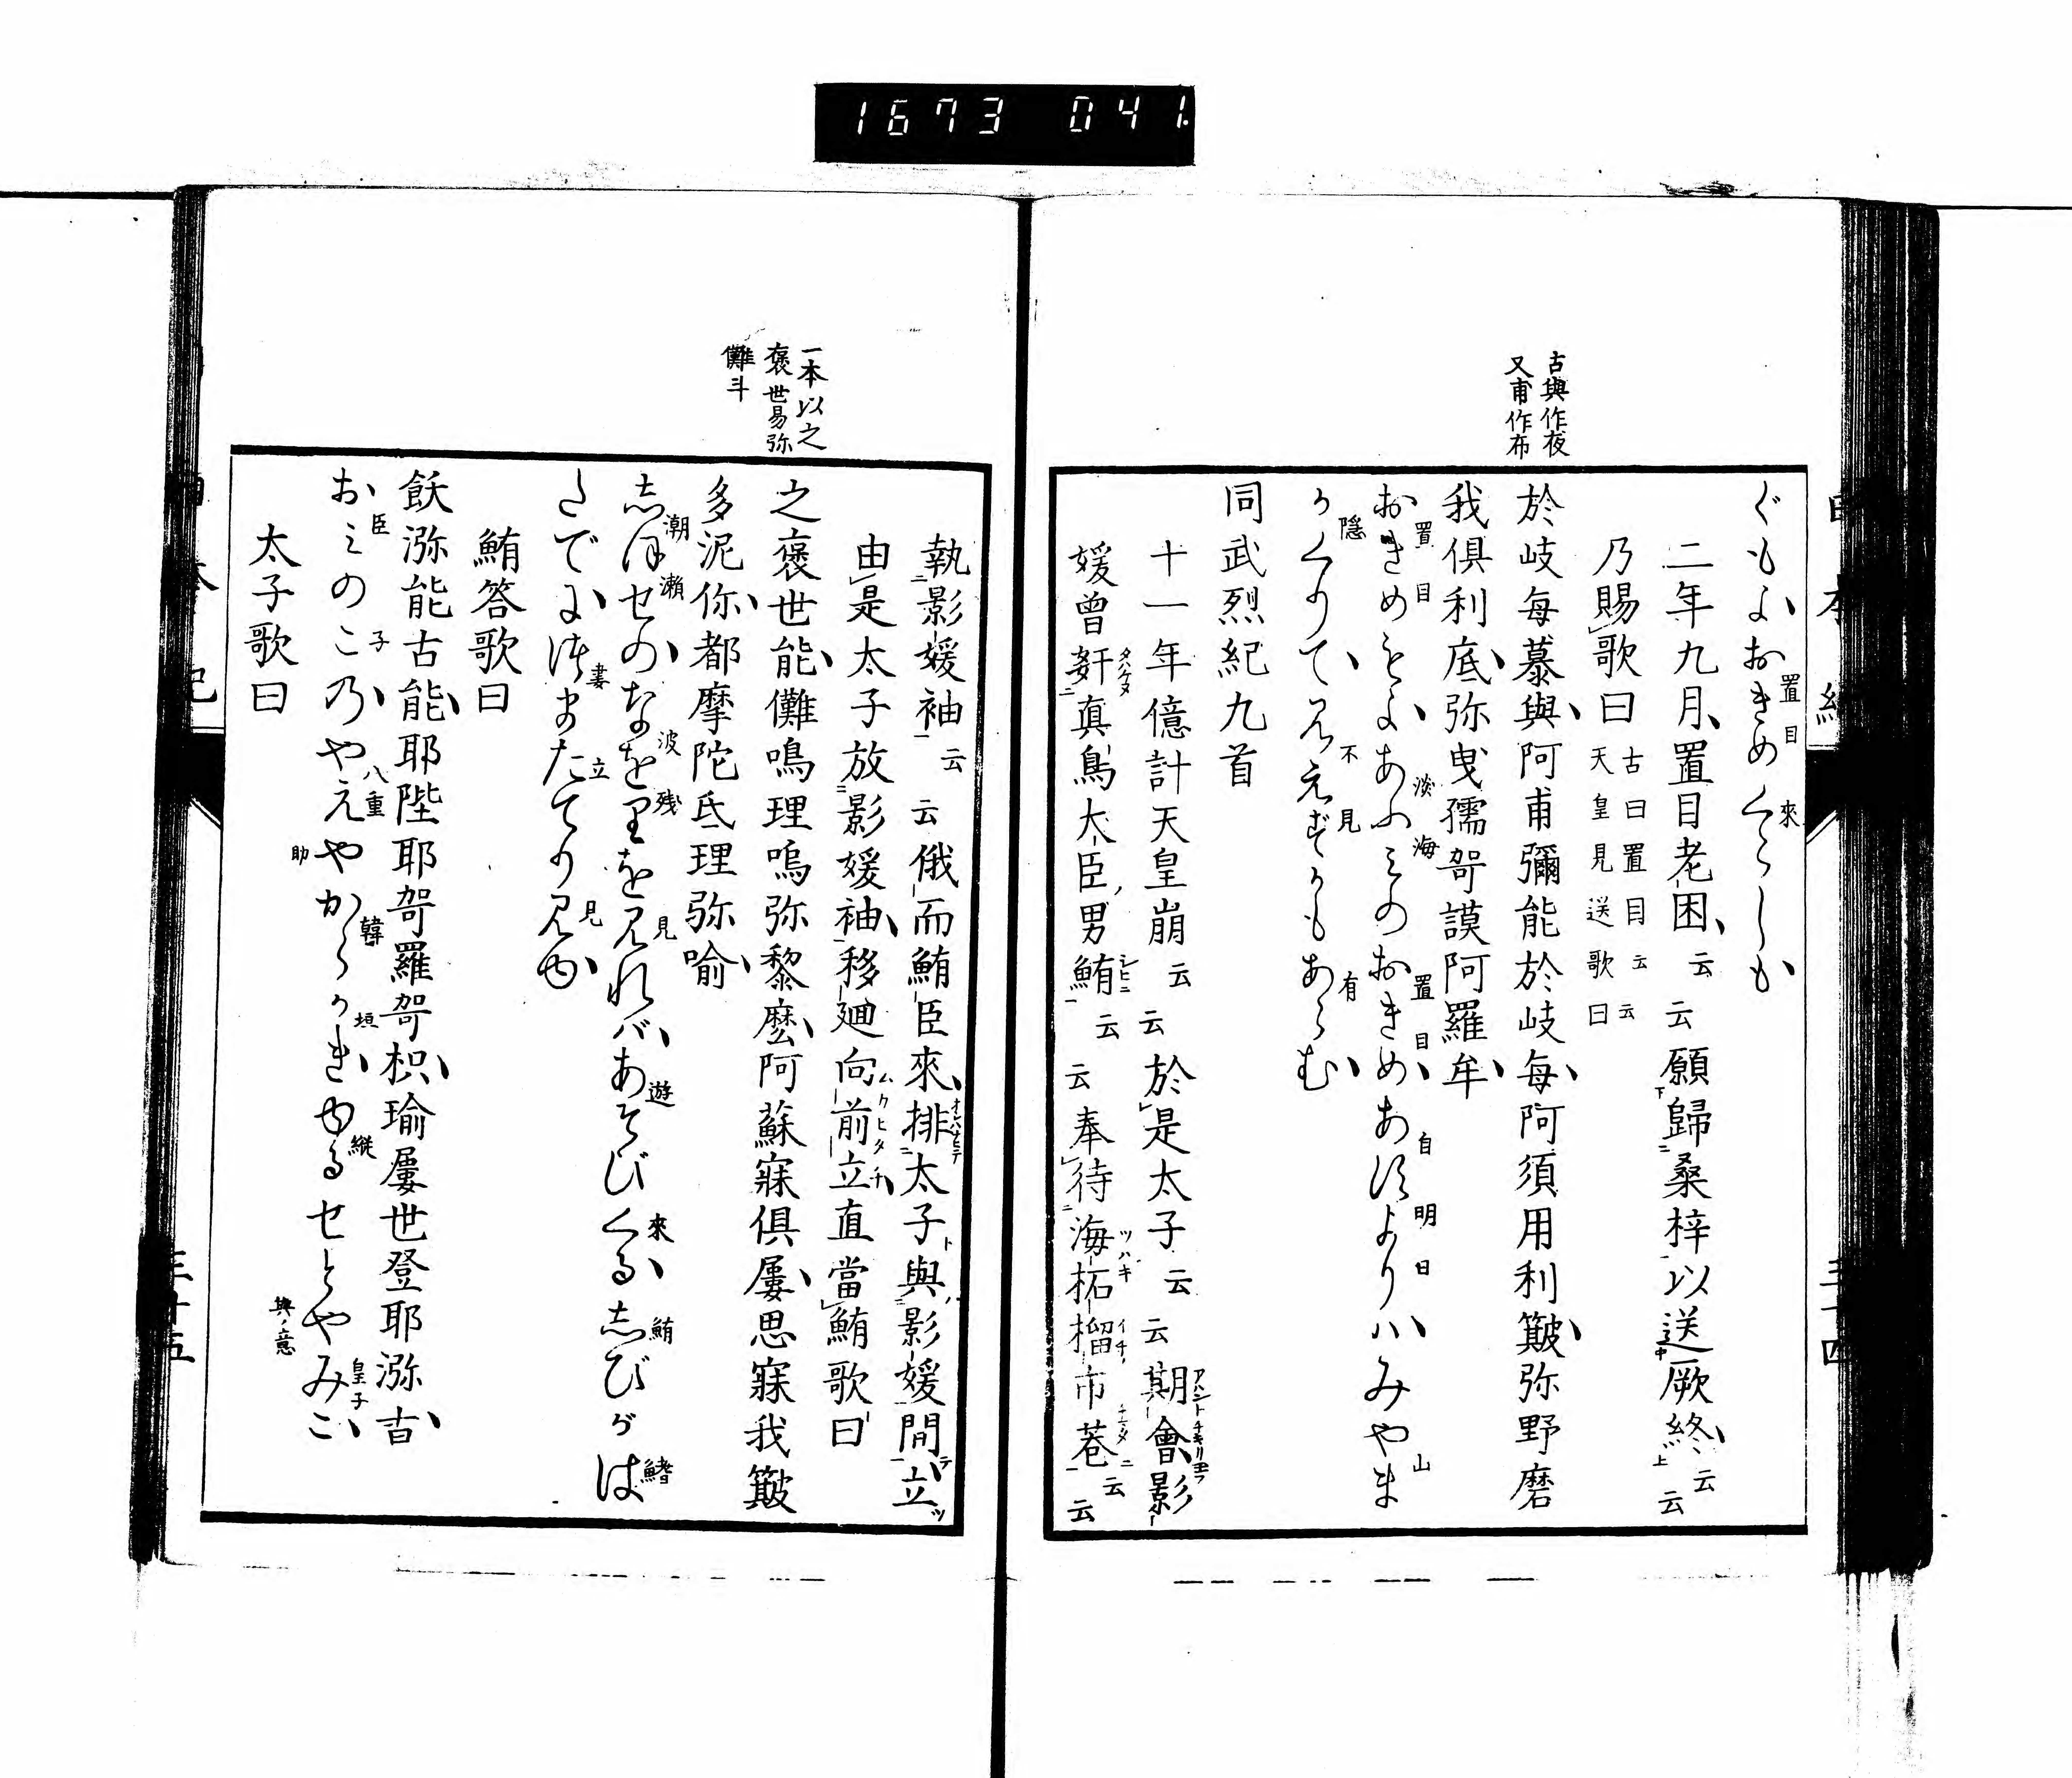 1673 041.
古與作夜
又甫作布
ぐもよおきめくらしも
二年九月置目老困云云願歸桑梓以送厥終云云
乃賜歌曰 古曰置目云云
天皇見送歌曰
於岐每慕與阿甫彌能於岐每阿須用利簸弥野磨
我俱利底弥曳孺哿謨阿羅牟
おきめもよあふみのおきめあすよりハみやま
かくりてみえずかもあらむ
同武烈紀九首
十一年億計天皇崩云云於是太子云云期會影
媛曾姧真鳥大臣男鮪云云奉待海柘榴市巷云云
一本以之
褒世易弥
儺斗
執影媛袖云云俄而鮪臣來排太子與影媛間立
由是太子放影媛袖移廻向前立直當鮪歌曰
之褒世能儺鳴理嗚弥黎麼阿蘇寐俱屢思寐我簸
多泥你都摩陀氐理弥喻
志ほせのなをりを見れバあそびくる志びがは
たでにつまたてり見ゆ
鮪答歌曰
飫瀰能古能耶陛耶哿羅哿枳瑜屢世登耶瀰古
おみのこ乃やえやからかきゆるせとやみこ
太子歌曰